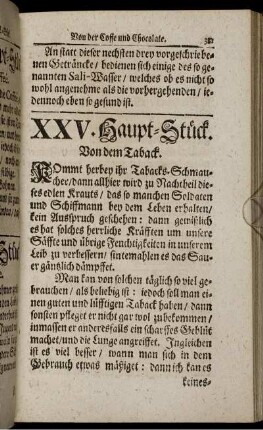 Von der Coffe und Chocolate. 381
An statt dieser nechsten drey vorgeschriebe-
nen Geträncke / bedienen sich einige des so ge-
nannten Sali-Wasser / welches ob es nicht so
wohl angenehme als die vorhergehenden / je-
dennoch eben so gesund ist.
XXV. Haupt-Stück.
Von dem Taback.
KOmmt herbey ihr Tabacks-Schmau-
cher / dann allhier wird zu Nachtheil die-
ses edlen Krauts / das so manchen Soldaten
und Schiffmann bey dem Leben erhalten /
kein Ausspruch geschehen: dann gewißlich
es hat solches herrliche Kräfften um unsere
Säffte und übrige Feuchtigkeiten in unserem
Leib zu verbessern / sintemahlen es das Sau-
er gäntzlich dämpffet.
Man kan von solchen täglich so viel ge-
brauchen / als beliebig ist: jedoch soll man ei-
nen guten und lüfftigen Taback haben / dann
sonsten pfleget er nicht gar wol zu bekommen /
inmassen er anderdsfalls ein scharffes Geblüt
machet / und die Lunge angreiffet. Ingleichen
ist es viel besser / wann man sich in dem
Gebrauch etwas mäßiget: dann ich kan es
keines-